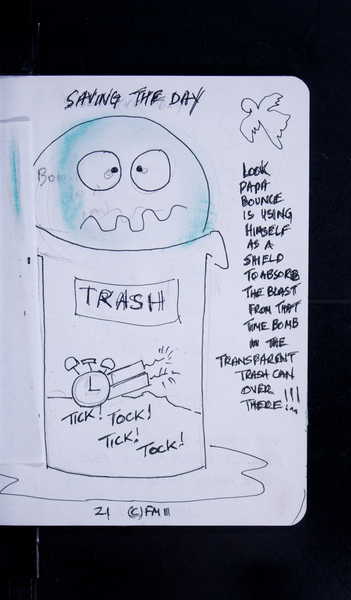 SAVING THE DAY
LOOK
PAPA
BOUNCE
IS USING
HIMSELF
AS A
SHIELD
TO ABSORB
THE BLAST
FROM THAT
TIME BOMB
IN THE
TRANSPARENT
TRASH CAN
OVER
THERE!!!
TRASH
TICK! TOCK!
TICK!
TOCK!
21 (C) FM III